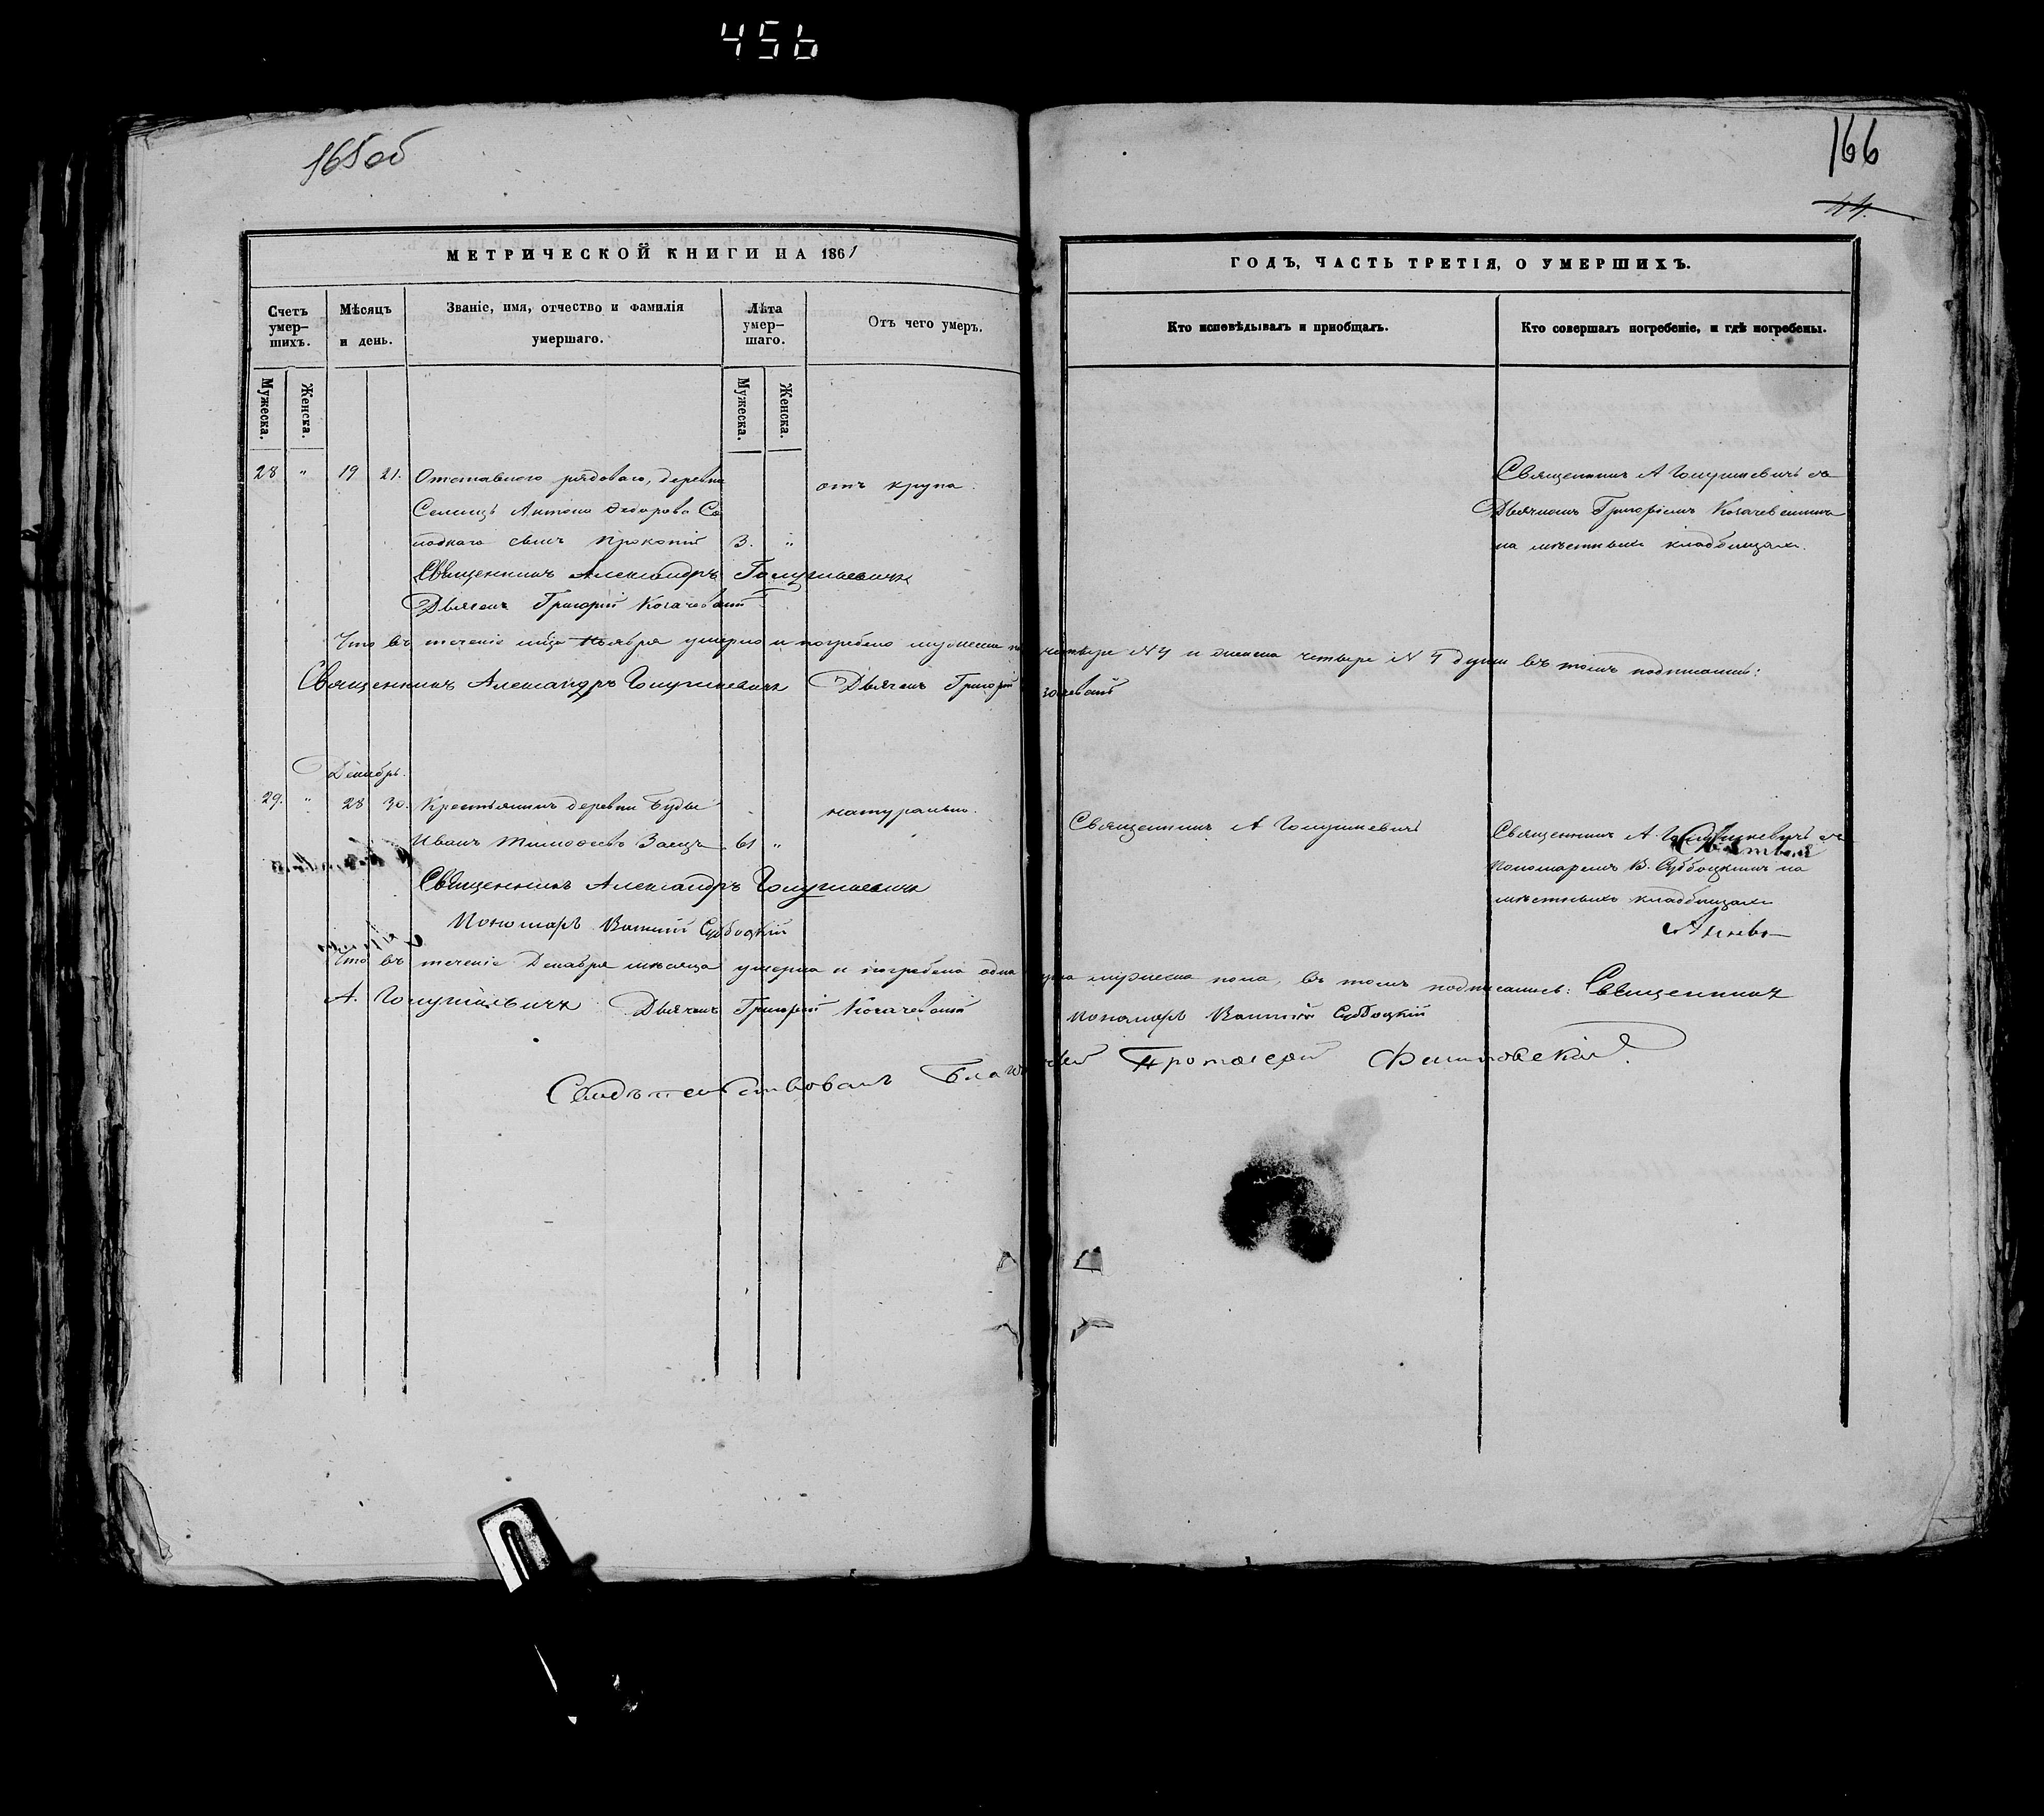 456
165об
166
44.
МЕТРИЧЕСКОЙ КНИГИ НА 1861
ГОДЪ, ЧАСТЬ ТРЕТІЯ, О УМЕРШИХЪ.
Счетъ умер-шихъ.
Мѣсяцъ и день.
Званіе, имя, отчество и фамилія умершаго.
Лѣта умер-шаго.
Отъ чего умеръ.
Кто исповѣдывалъ и пріобщалъ.
Кто совершалъ погребеніе, и гдѣ погребены.
Мужеска.
Женска.
Мужеска.
Женска.
28 " 19 21. Отставного рядоваго, деревни
Селищъ Антона Федорова Со
лодкаго сынъ Прокопій 3. "
отъ крупа.
Священникъ А Голушкевичъ съ
Дьячкомъ Григоріемъ Косачевскимъ
на мѣстныхъ кладбищахъ.
Священникъ Александръ Голушкевичъ
Дьячекъ Григорій Косачевскій
Что въ теченіе мца Ноября умерло и погребено мужеска четыре № 4 и женска четыре № 4 души въ томъ подписались:
Священникъ Александръ Голушкевичъ Дьячекъ Григорій
Декабрь.
29. " 28 30. Крестьянинъ деревни Буды
Иванъ Тимофеевъ Заецъ 61 "
натурально.
Священникъ А Голушкевичъ
Священникъ А. Голушкевичъ съ
Пономаремъ В. Субботскимъ на
мѣстныхъ кладбищахъ
Священникъ Александръ Голушкевичъ
Пономарь Субботскій
Что въ теченіе Декабря мѣсяца умерла и погребена одна душа мужеска пола, въ томъ подписались: Священникъ
А. Голушкевичъ Дьячекъ Григорій Косачевскій Пономарь Субботскій
Свидѣтельствовалъ Протоіерей